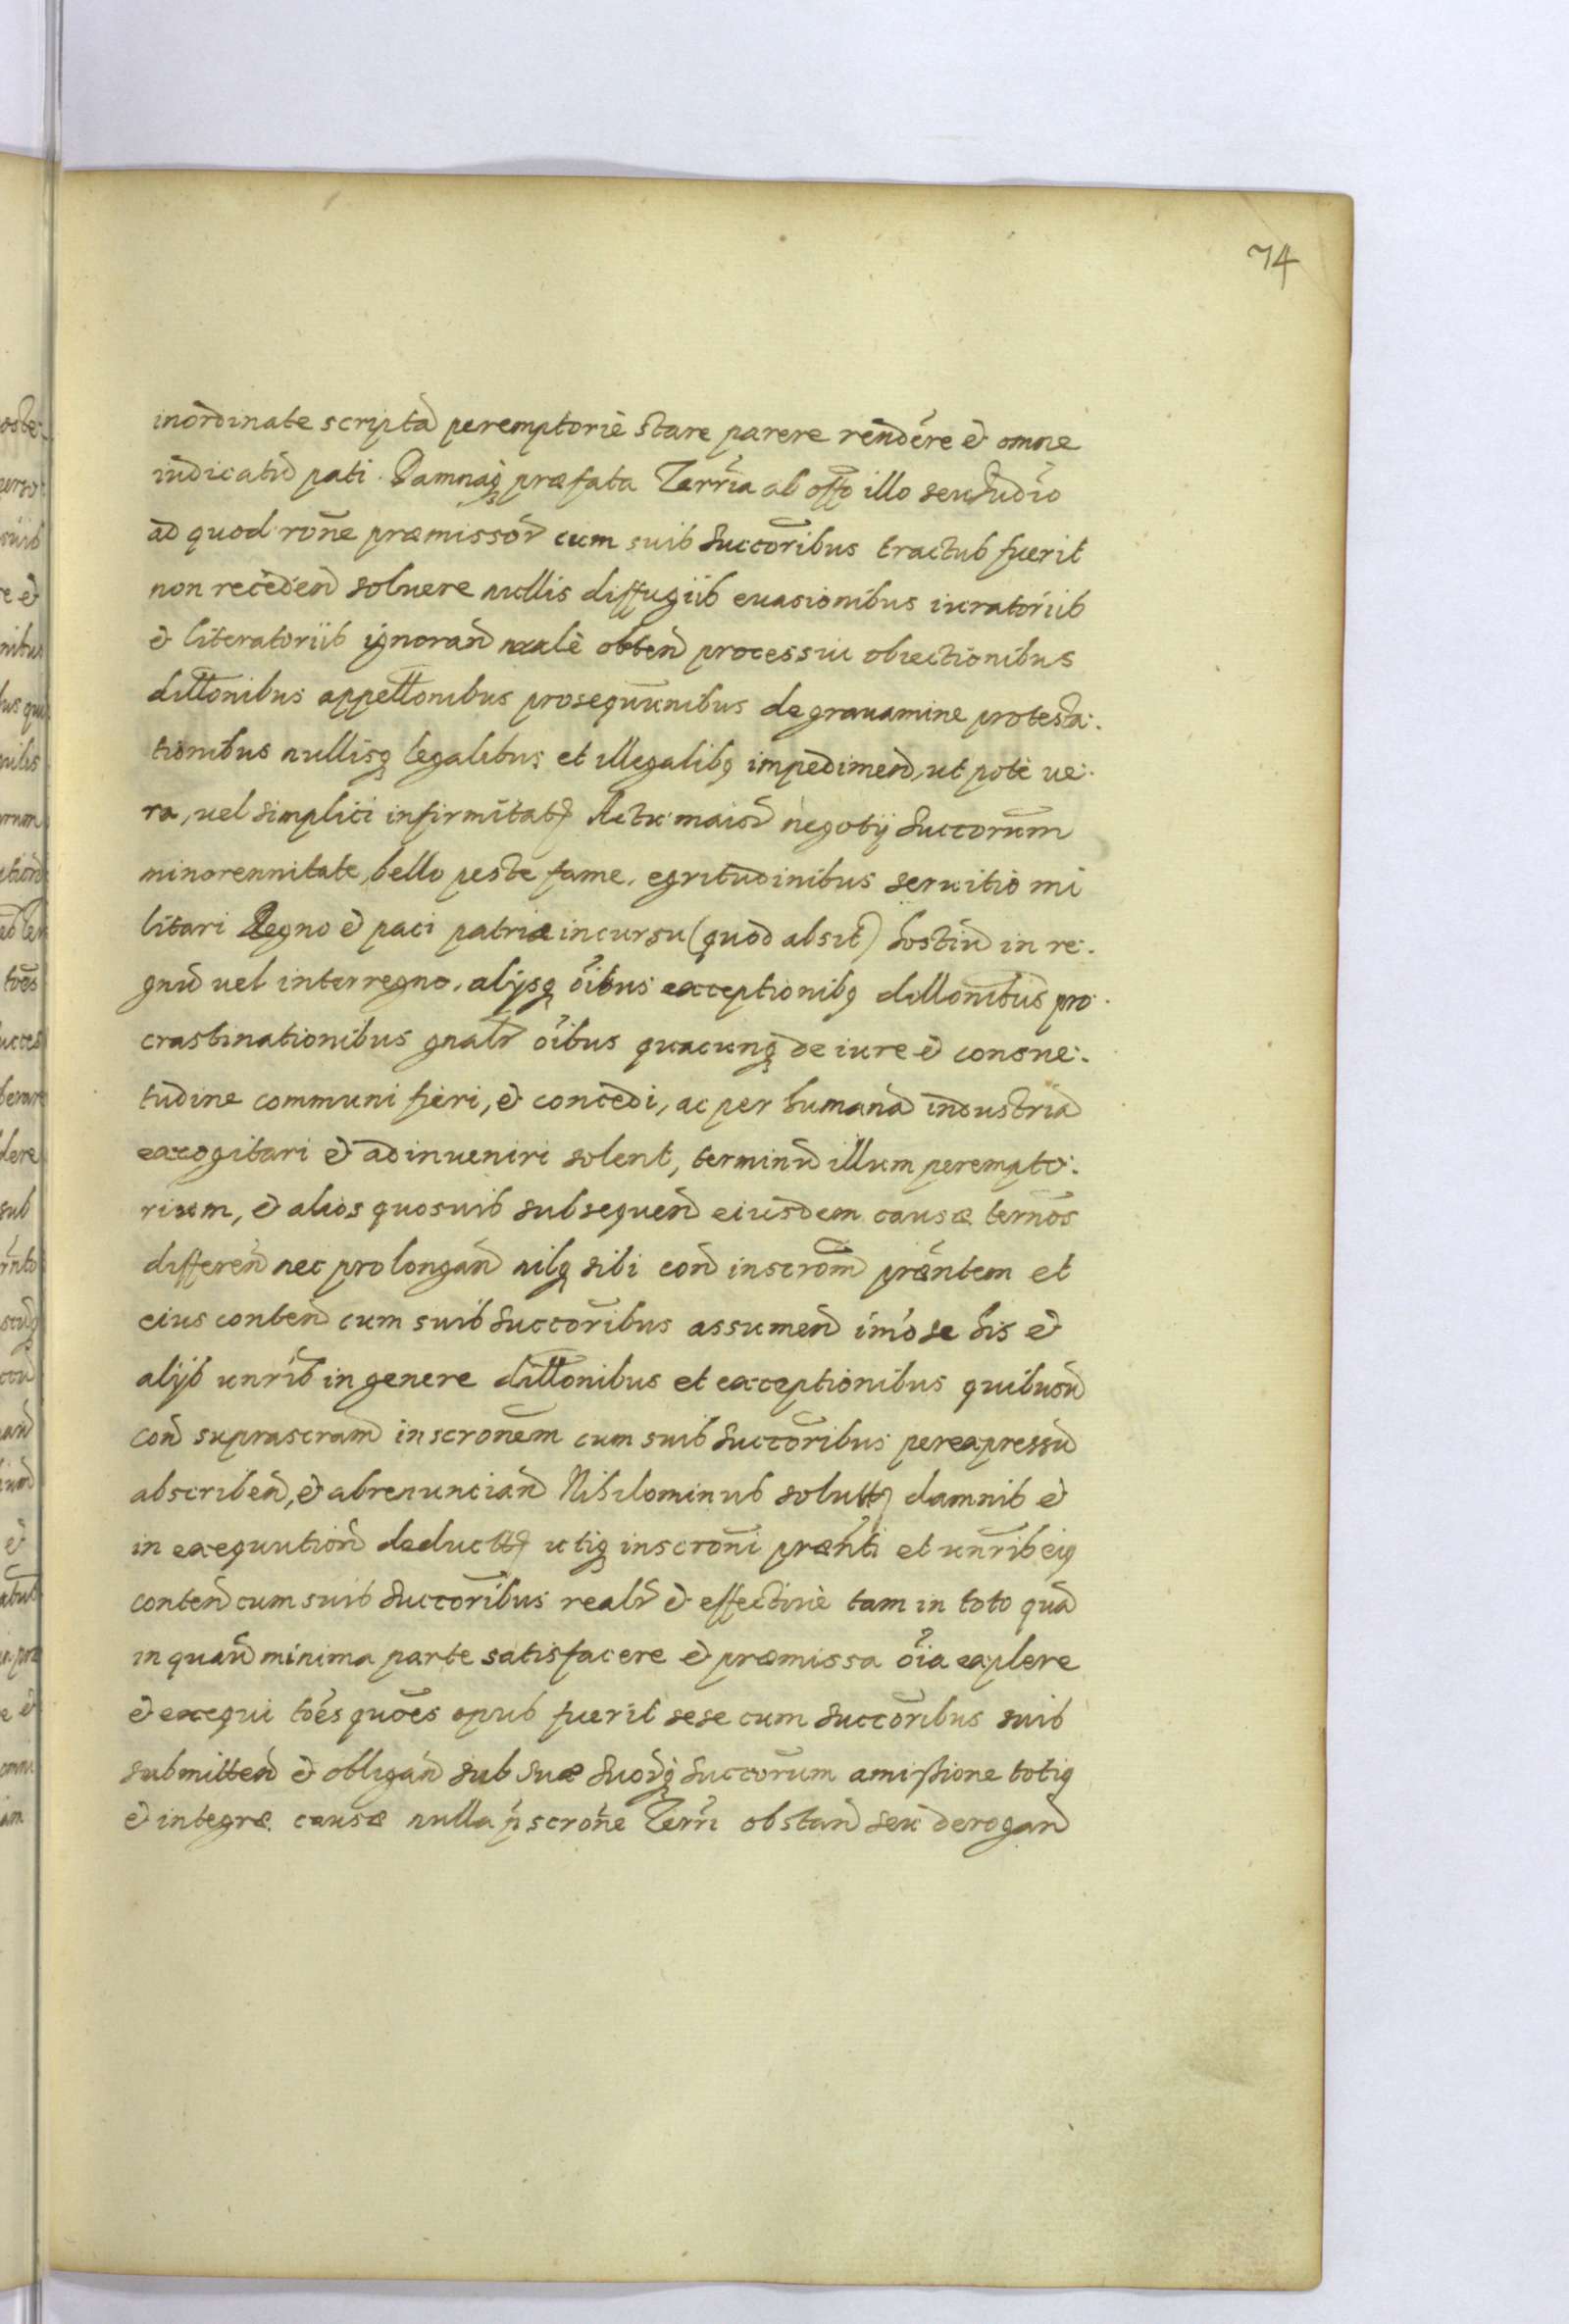 74
inordinate scriptã peremptoriè stare parere rendere et omne
iudicatũ pati. Damnaq́ præfata Terr̃ia ab offo illo seu Judio
ad quod rõne præmissor̃ cum suis succõribus tractus fuerit
non receden̄ soluere nullis diffugiis euasionibus iuratoriis
et literatoriis ignoran̄ malè obten̄ processiu obiectionibus
dillõnibus appellõnibus prosequũnibus de grauamine protesta:
tionibus nullisq́ legalibus et illegalibq impedimen̄, ut potè ve:
ra, uel simplici infirmitate Actu maior̃ negotij succorũm
minorennitate, bello peste fame, egritudinibus seruitio mi
litari Regno et paci patriæ incursu (quod absit) hostiũ in re:
gnũ uel interregno, alijsq́ õibus exceptionibq dillonibus pro:
crastinationibus gñalr õibus quæcunq́ de iure et consue:
tudine communi fieri, et concedi, ac per humanã industriã
excogitari et adinueniri solent, terminũ illum perempto:
rium, et alios quosuis subsequen̄ eiusdem causæ termos
differen̄ nec prolongan̄ nilq́ sibi con̄ inscrõm præntem et
eius conten̄ cum suis succõribus assumen̄ imò se his et
alijs unr̃is in genere dillõnibus et exceptionibus quibusũ
con̄ suprascram̄ inscronem cum suis succõribus per expressũ
abscriben̄, et abrenuncian̄ Nihilominus solutt̃ damnis et
in exequution̄ deductt̃ utiq́ inscroni prænti et unr̃is eiq
conten̄ cum suis succõribus realr̃ et effectiuè tam in toto quã
in quaũ minima parte satisfacere et præmissa õia explere
et exequi tões quões opus fuerit sese cum succõribus suis
submitten̄ et obligan̄ sub suæ suor̃q́ succorũm amissione totiq
et integræ causæ nulla p̃scrone Terri obstan̄ seu derogan̄